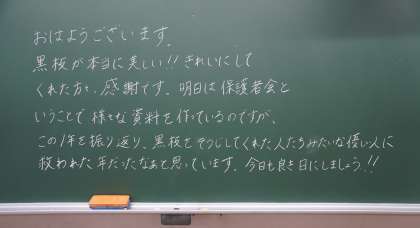 おはようございます。
黒板が本当に美しい!! きれいにして
くれた方々、感謝です。明日は保護者会と
いうことで様々な資料を作っているのですが、
この1年を振り返り、黒板をそうじしてくれた人たちみたいな優しい人に
救われた年だったなぁと思っています。今日も良き日にしましょう!!